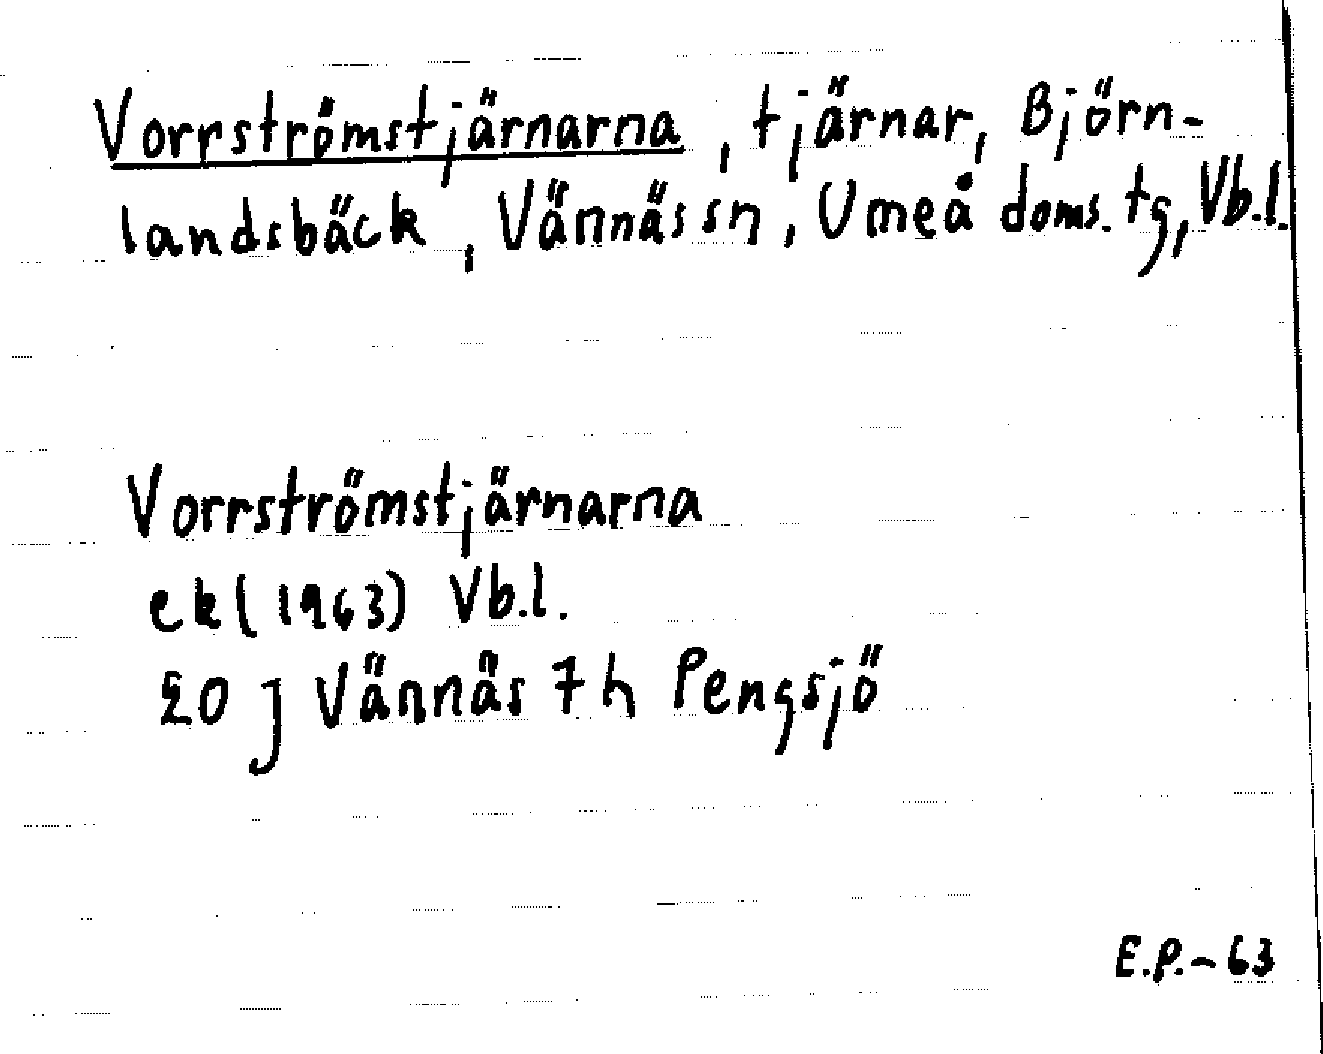 Vorrströmstjärnarna, tjärnar, Björn-
landsbäck, Vännäs sn, Umeå doms. tg, Vb.l.
Vorrströmstjärnarna
ek (1963) Vb.l.
20 j Vännäs 7 h Pengsjö
E.P. - 63